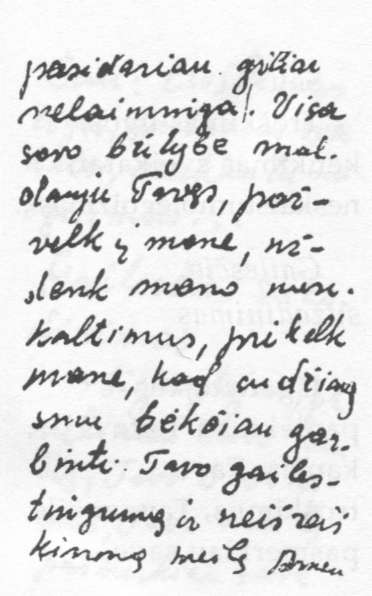 pasidariau giliai
nelaiminga!. Visa
savo būtybe mal-
dauju Tavęs, paž-
velk į mane, už-
denk mano nusi-
kaltimus, priteik
mane, kad su džiaug
smu bėkčiau gar-
binti Tavo gailes-
tingumą ir neišreiš
kiamą meilę Amen